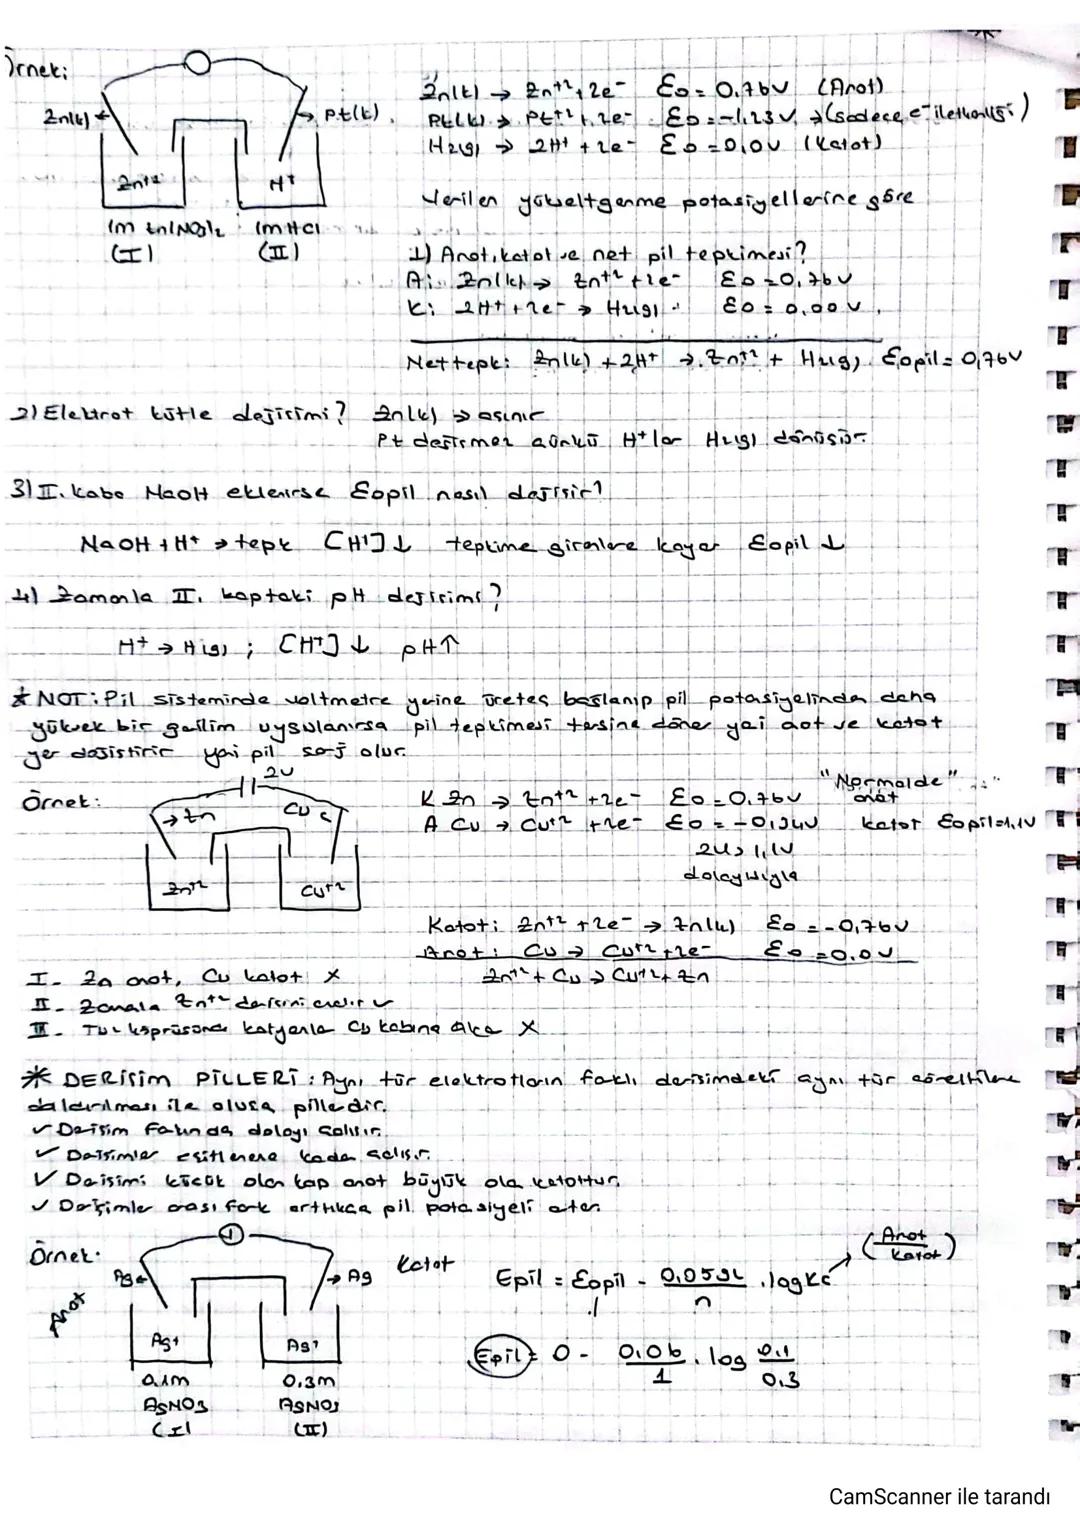 Örnek:
Zn(k) → Zn+2 + 2e- Eo = 0.76V (Anot)
Zn(k)
Pt(k)
Pt(k) → Pt+2 + 2e- Eo = -1,23V → (sadece e- iletkenliği)
H2(g) → 2H+ + 2e- Eo = 0,0V (Katot)
Zn+2
H+
Verilen yükseltgenme potasiyellerine göre
1M Zn(NO3)2
1M HCl
(I)
(II)
1) Anot, katot ve net pil tepkimesi?
A: Zn(k) → Zn+2 + 2e- Eo = 0,76V
K: 2H+ + 2e- → H2(g) Eo = 0,00V
Net tepk: Zn(k) + 2H+ → Zn+2 + H2(g) Eopil = 0,76V
2) Elektrot kütle değişimi? Zn(k) → aşınır
Pt değişmez çünkü H+lar H2(g) dönüşür.
3) II. kaba NaOH eklenirse Eopil nasıl değişir?
NaOH + H+ → tepk [H+]↓ tepkime girenlere kayar Eopil ↓
4) Zamanla II. kaptaki pH değişimi?
H+ → H(g) ; [H+]↓ pH↑
* NOT: Pil sisteminde voltmetre yerine üreteç bağlanıp pil potasiyelinden daha
yüksek bir gerilim uygulanırsa pil tepkimesi tersine döner yai aot ve katot
yer değiştirir yai pil şarj olur.
Örnek:
2V
Zn
Cu
K Zn → Zn+2 + 2e- Eo = 0.76V
"Normalde"
anot
A Cu → Cu+2 + 2e- Eo = -0,34V katot Eopil=1,1V
2V > 1,1V
dolayısıyla
Zn+2
Cu+2
Katot: Zn+2 + 2e- → Zn(k) Eo = -0,76V
Anot: Cu → Cu+2 + 2e- Eo = 0.0V
Zn+2 + Cu → Cu+2 + Zn
I- Zn anot, Cu katot X
II- Zn+2 ✓
III- Tuz köprüsünde katyonla Cu kabına aka X
* DERİŞİM PİLLERİ: Aynı tür elektrotların faklı derişimdeki aynı tür çözeltilere
daldırılması ile oluşa pilledir.
✓ Deişim fakında dolayı çalışır.
✓ Deişimler eşitlenene kada çalışır.
✓ Deişimi küçük olan kap anot büyük ola katottur.
✓ Derişimle arası fark arttıkça pil potasiyeli atar.
Örnek:
Ag
Ag
Katot
Anot
Epil = Eopil - 0.0592/n . log Kc
(Anot/Katot)
Ag+
Ag+
Epil = 0 - 0.06/1 . log 0.1/0.3
0.1M
AgNO3
(I)
0.3M
AgNO3
(II)
CamScanner ile tarandı